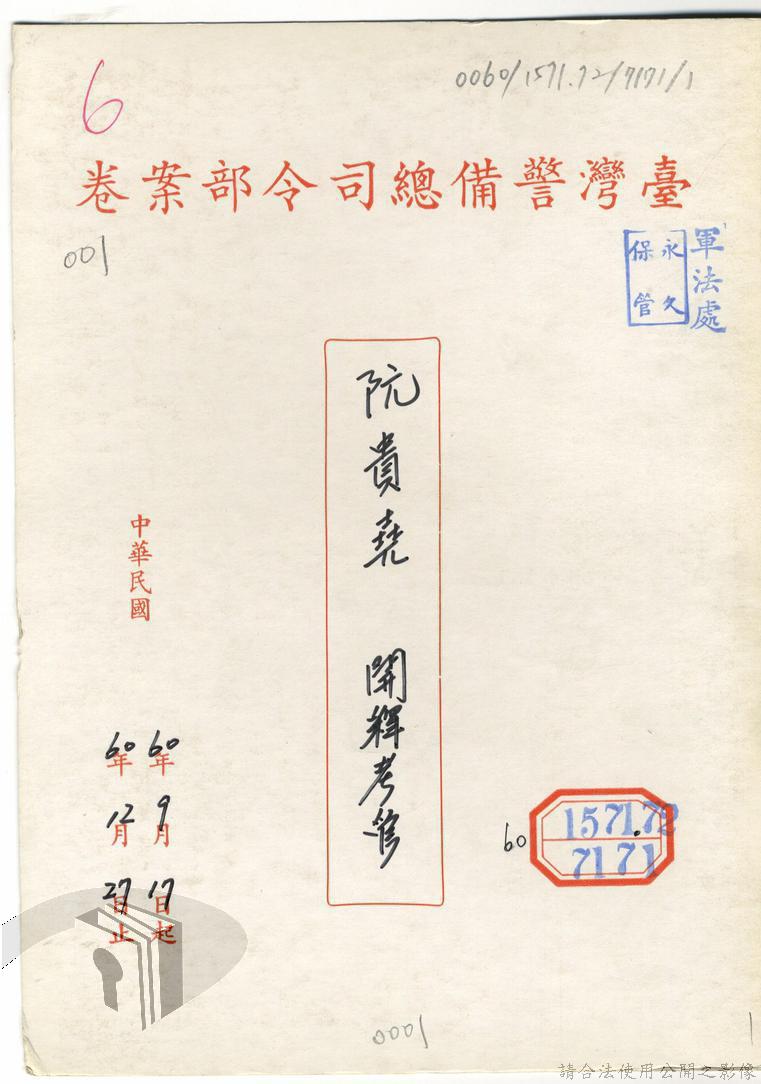 6
0060/1571.72/7171/1
臺灣警備總司令部案卷
001
軍法處
永久
保管
阮貴堯 開釋考管
中華民國
60年9月17日起
60年12月27日止
60
1571.72
7171
0001
請合法使用公開之影像